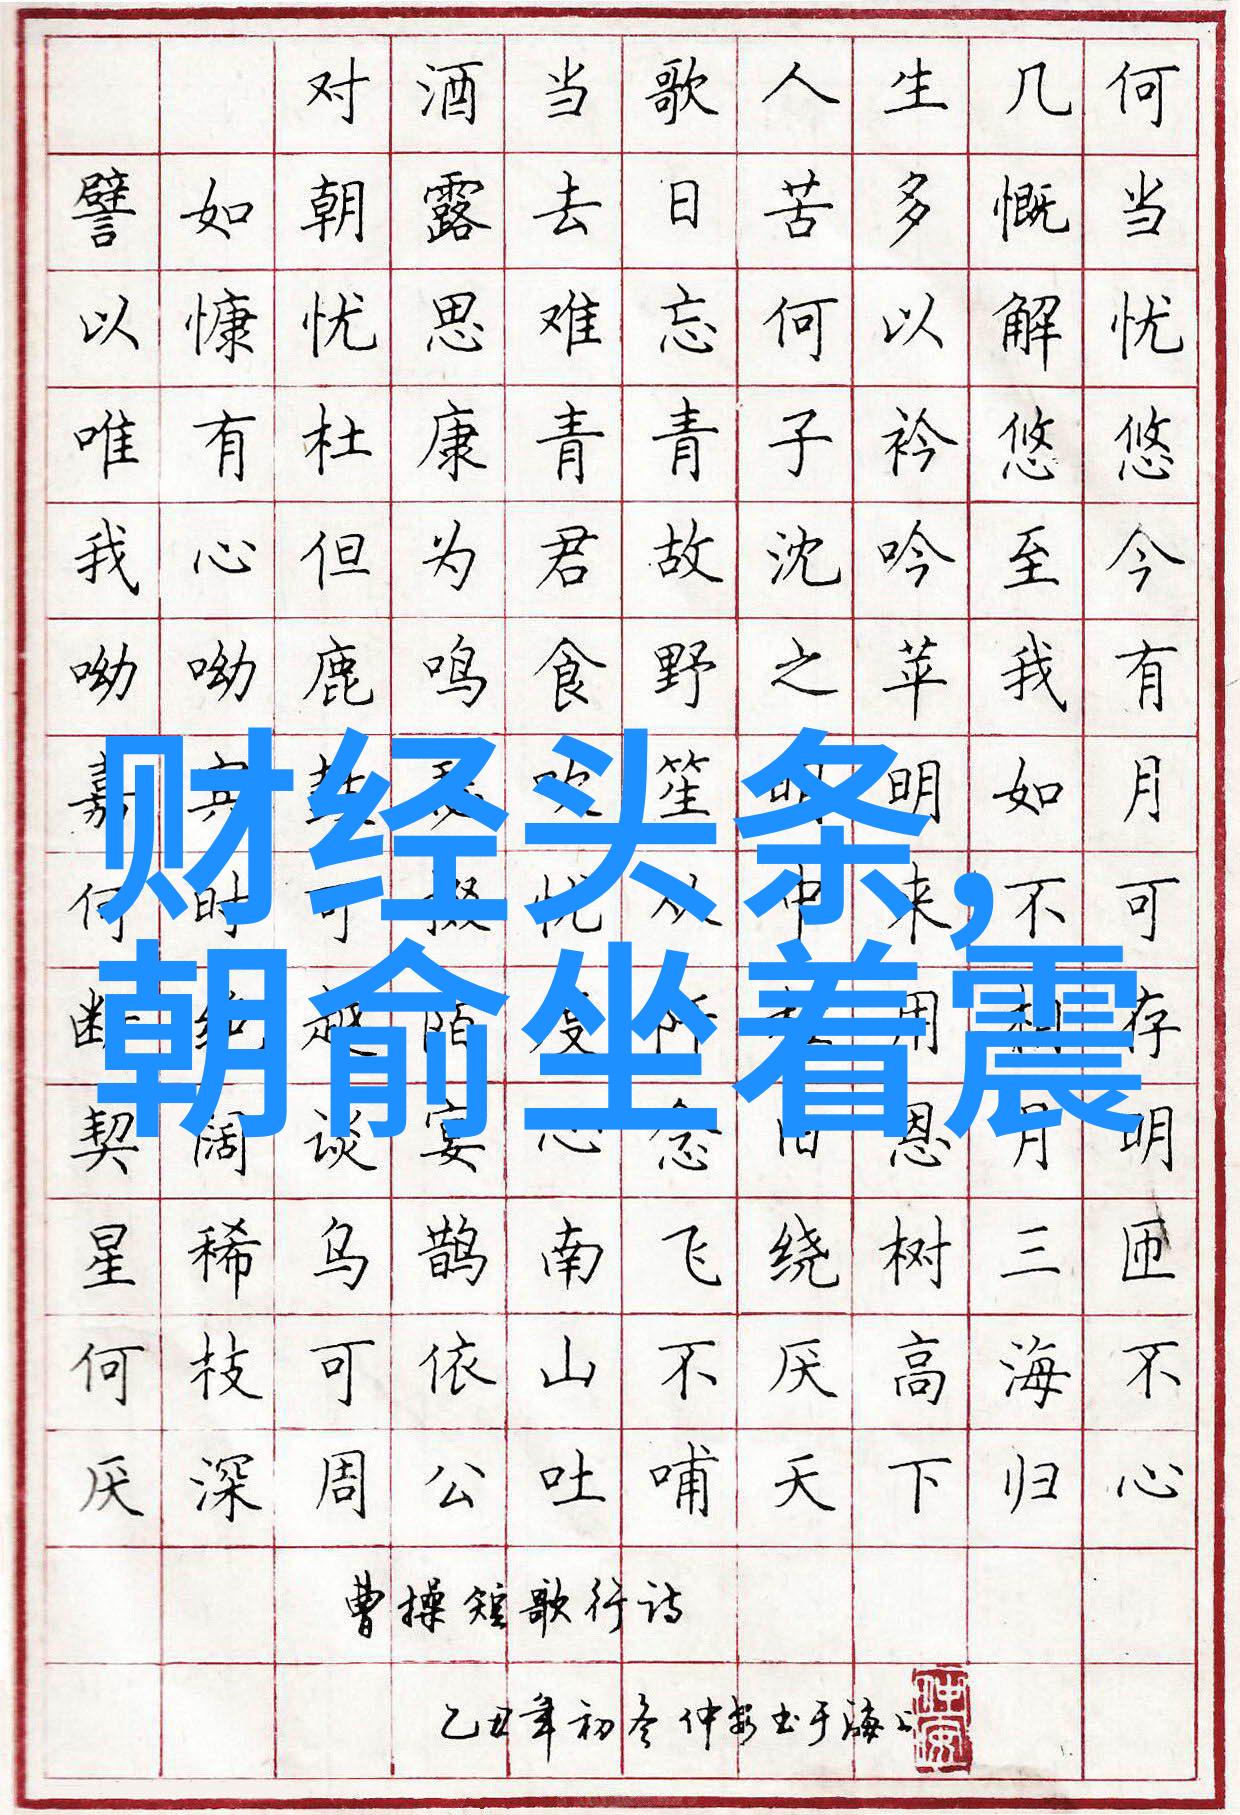 对酒当歌人生几何
譬如朝露去日苦多慨当
以慷忧思难忘何以解忧
唯有杜康青青子衿悠悠
我心但为君故沈吟至今
呦呦鹿鸣食野之苹我有
嘉宾鼓瑟吹笙明明如月
何时可掇忧从中来不可
断绝越陌度阡 用相存
契阔谈宴心念旧恩月明
星稀乌鹊南飞绕树三匝
何枝可依山不厌高海不
厌深周公吐哺天下归心
曹操短歌行诗
乙丑年初冬仲安书于海上
仲安
财经头条,
朝俞坐着震